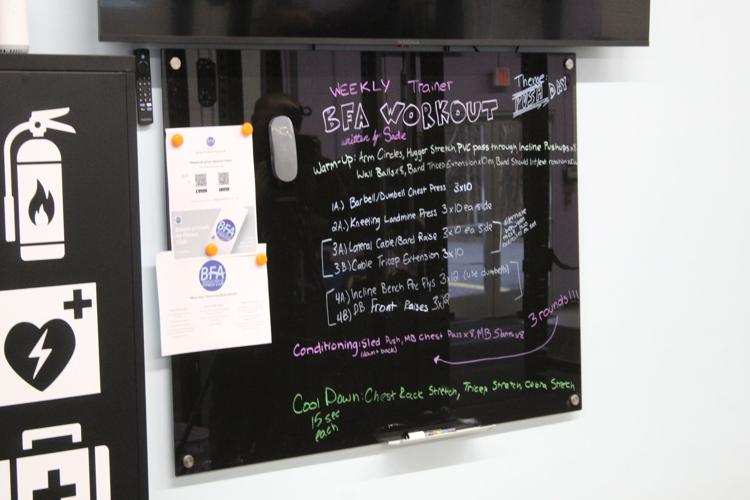 WEEKLY Trainer
BFA WORKOUT
written by Sade
Theme:
PUSH DAY
Warm-Up: Arm Circles, Hugger Stretch, PVC pass through Incline Pushups x8
Wall Balls x 8, Band Tricep Extension x10
1A.) Barbell/Dumbell Chest Press 3x10
2A.) Kneeling Landmine Press 3x10 ea side
3A) Lateral Cable/Band Raise 3x10 ea side
3B) Cable Tricep Extension 3x10
alternate
4A) Incline Bench Pec Flys 3x12 (use dumbells)
4B) DB Front Raises 3x12
3 rounds!!!
Conditioning: sled Push, MB Chest Pass x 8, MB Slams x8
(down + back)
Cool Down: Chest Rack Stretch, Tricep Stretch, Cobra Stretch
15 sec
each
BFA
BFA